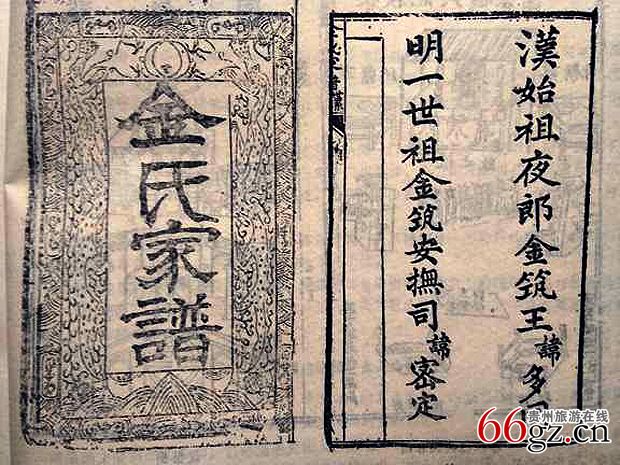 漢始祖夜郎金筑王諱多
明一世祖金筑安撫司諱密定
金氏家譜
贵州旅游在线
66gz.cn